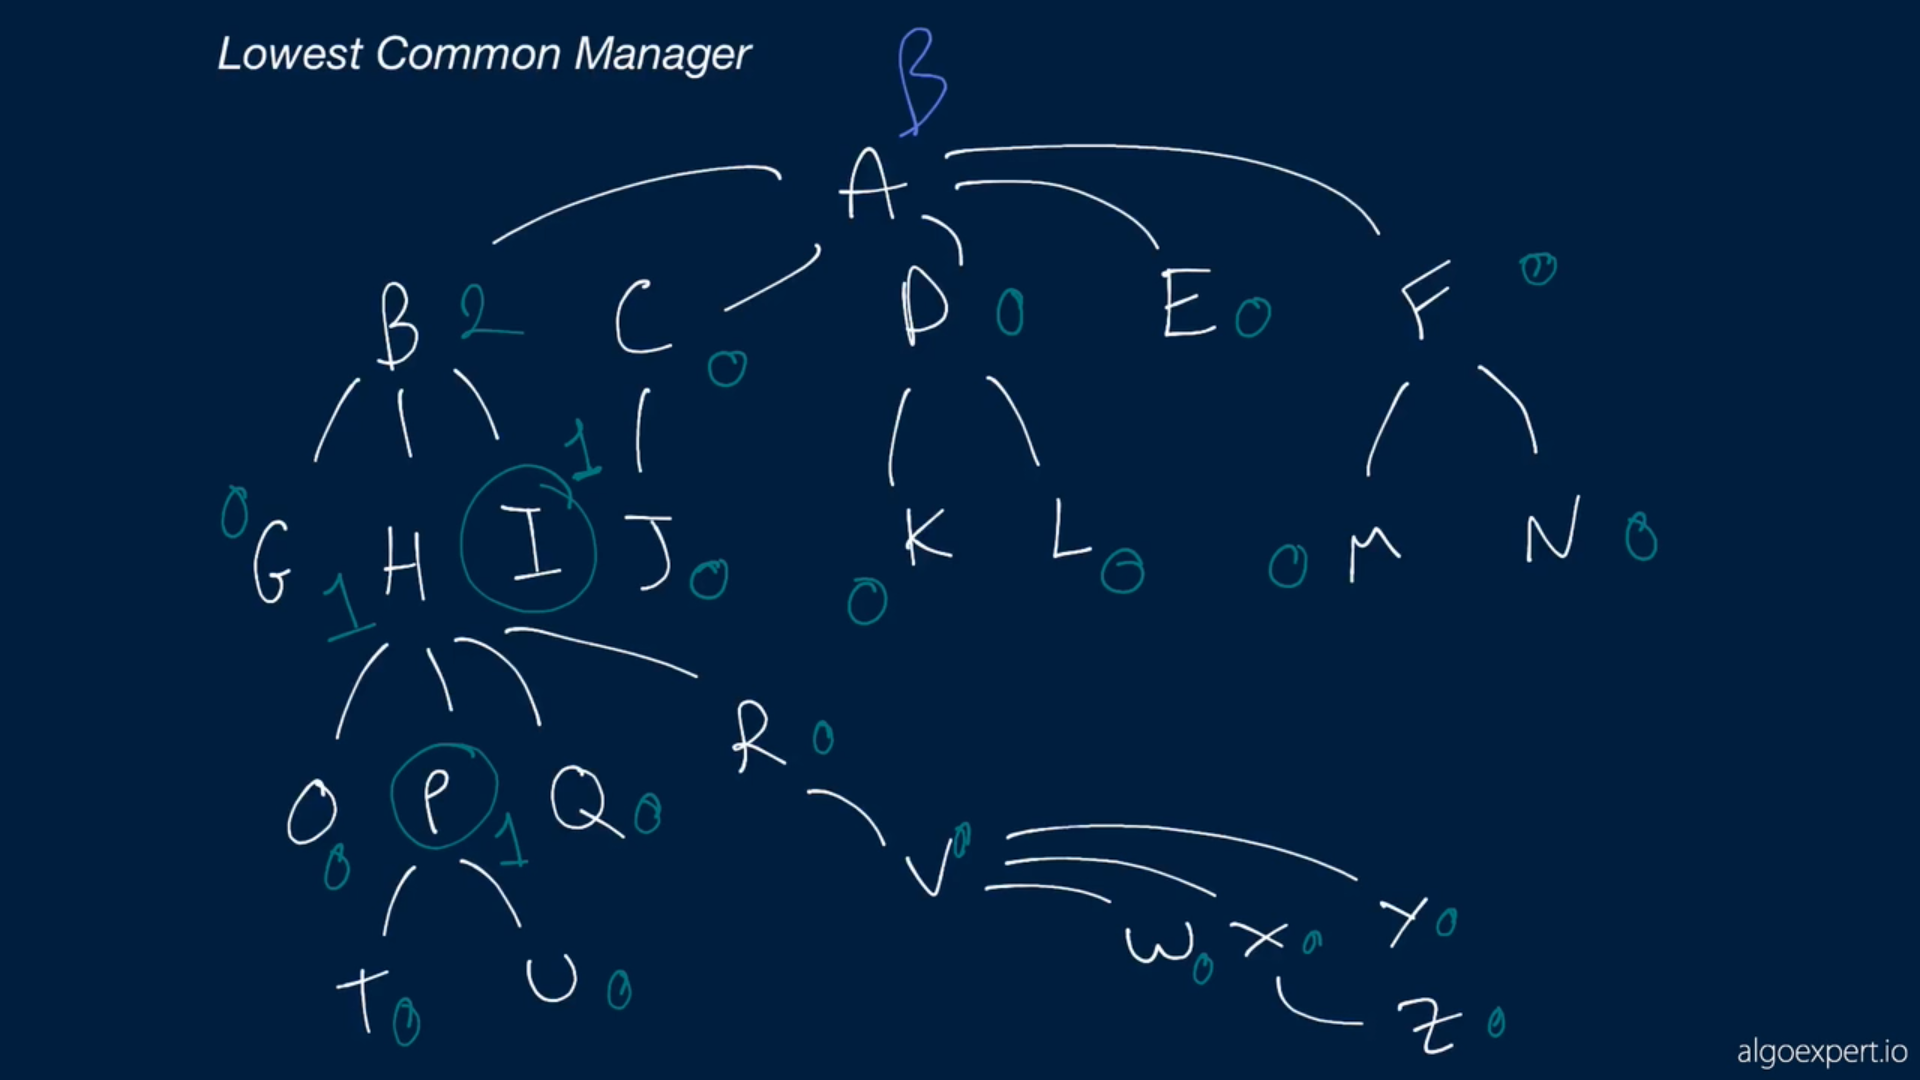 Lowest Common Manager
B
A
B 2 C 0 D 0 E 0 F 0
0 G 1 H I 1 J 0 0 K L 0 0 M N 0
O 0 P 1 Q 0 R 0
T 0 U 0 V 0 W 0 X 0 Y 0
Z 0
algoexpert.io